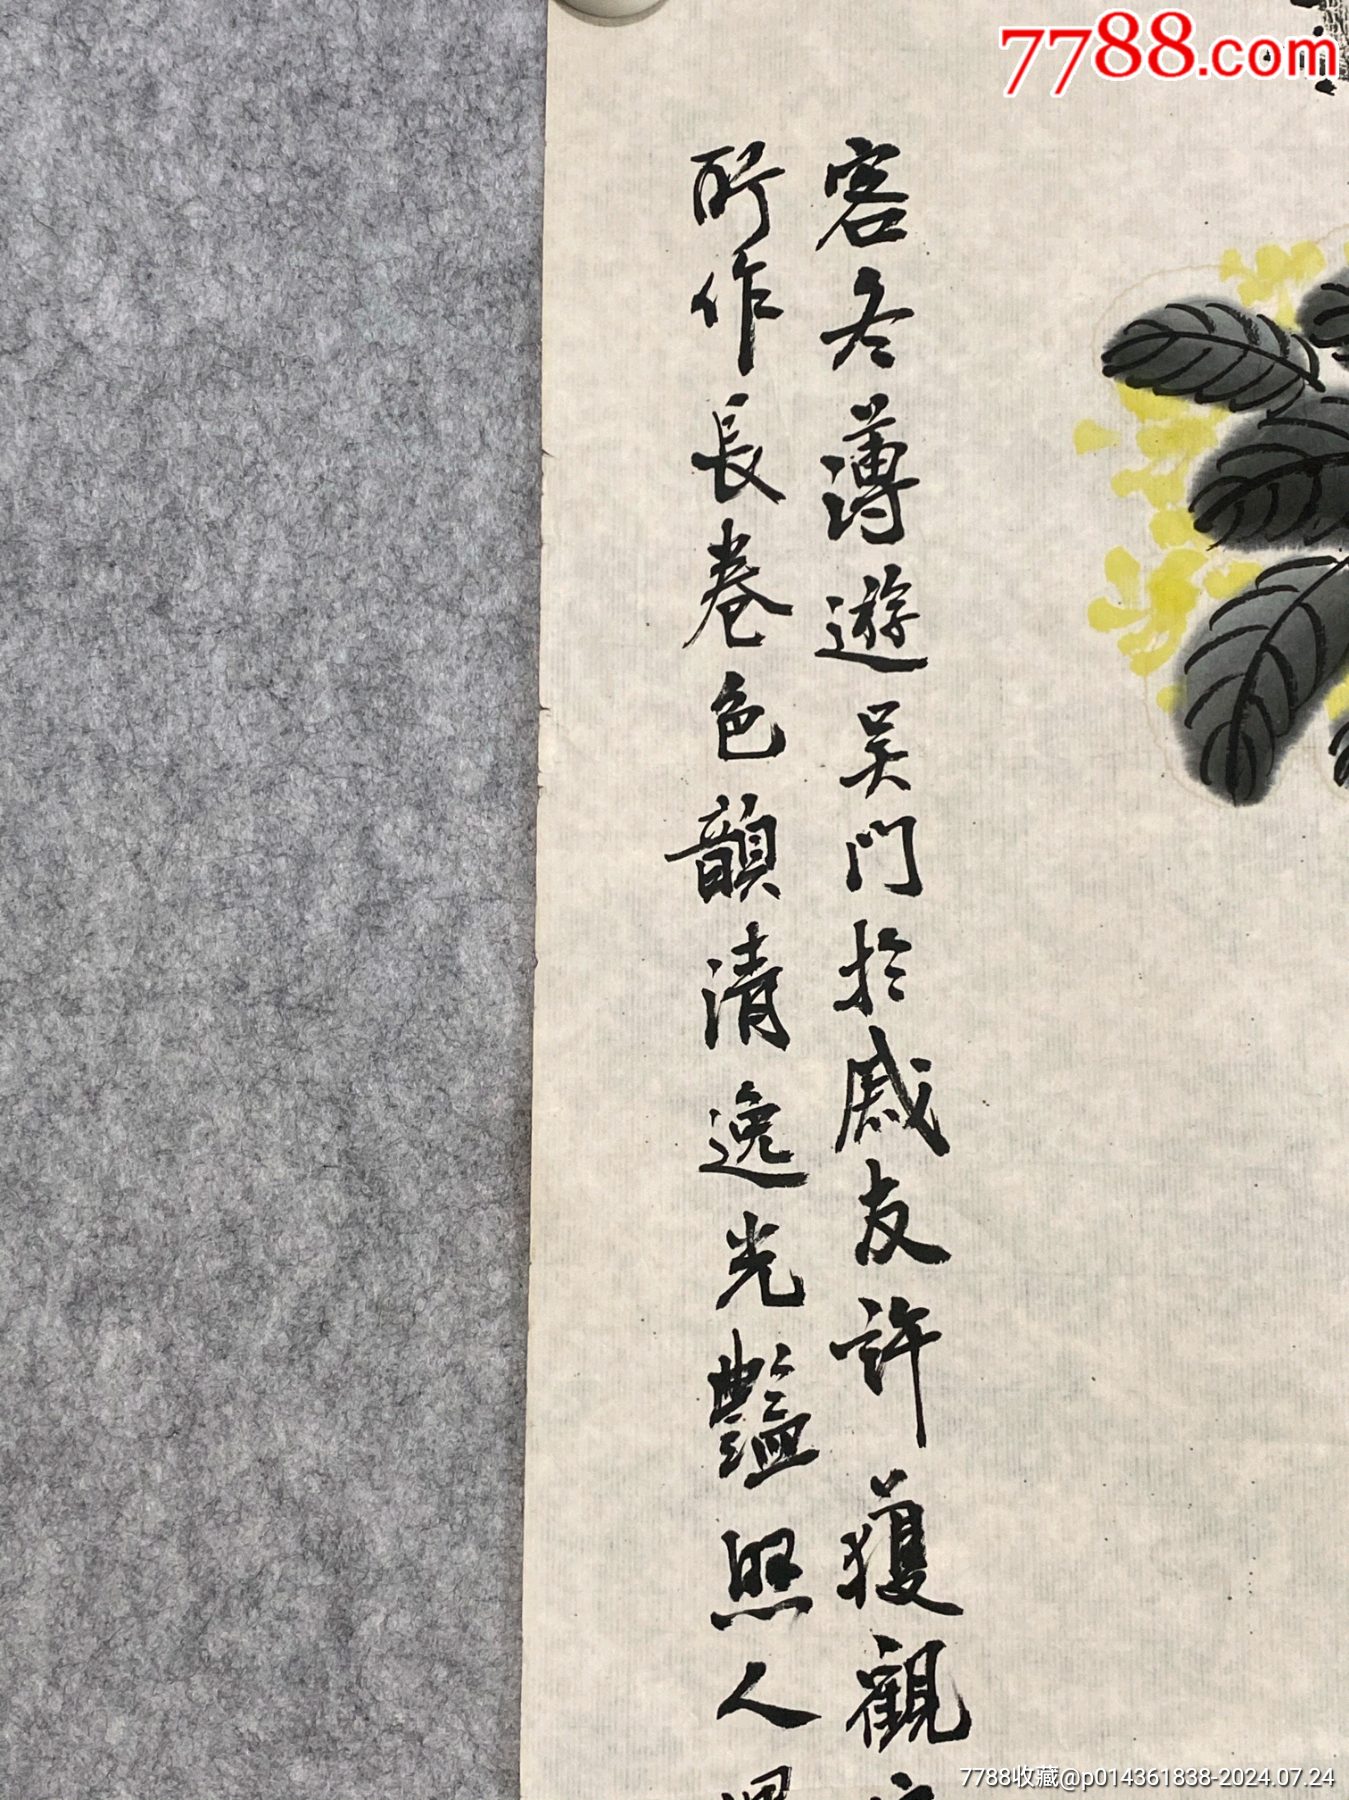 7788.com
客冬薄遊吴門於戚友許獲觀
所作長卷色韻清逸光豔照人
7788收藏@p014361838-2024.07.24